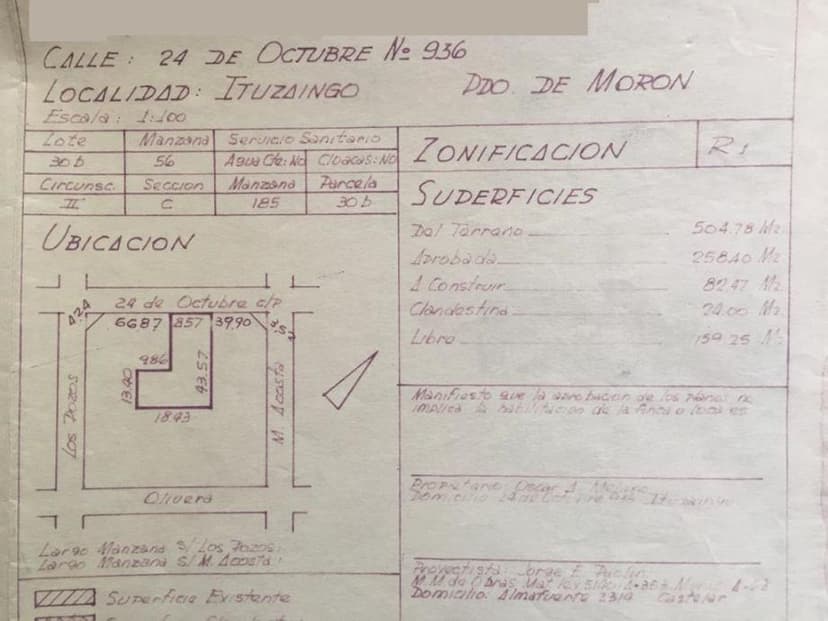 CALLE: 24 DE OCTUBRE Nº 936
LOCALIDAD: ITUZAINGO PDO. DE MORON
Escala: 1:100
Lote Manzana Servicio Sanitario
30b 56 Agua Cte: No Cloacas: No
Circunsc. Seccion Manzana Parcela
II C 185 30b
ZONIFICACION R1
SUPERFICIES
Del Terreno 504.78 M2
Aprobada 258.40 M2
A Construir 82.47 M2
Clandestina 24.00 M2
Libre 159.25 M2
UBICACION
24 de Octubre c/P
4.24 6687 857 39.90
986
13.90 43.57
1843
Los Pozos
M. Acosta
Olivera
Largo Manzana S/ Los Pozos:
Largo Manzana S/ M. Acosta:
Superficie Existente
Manifiesto que la aprobacion de los planos no
implica la habilitacion de la finca o locales
Propietario: Oscar A.
Domicilio 24 de Octubre 936 Ituzaingo
Proyectista: Jorge E.
M.M. de Obras Mat.
Domicilio: Almafuerte 2319 Castelar